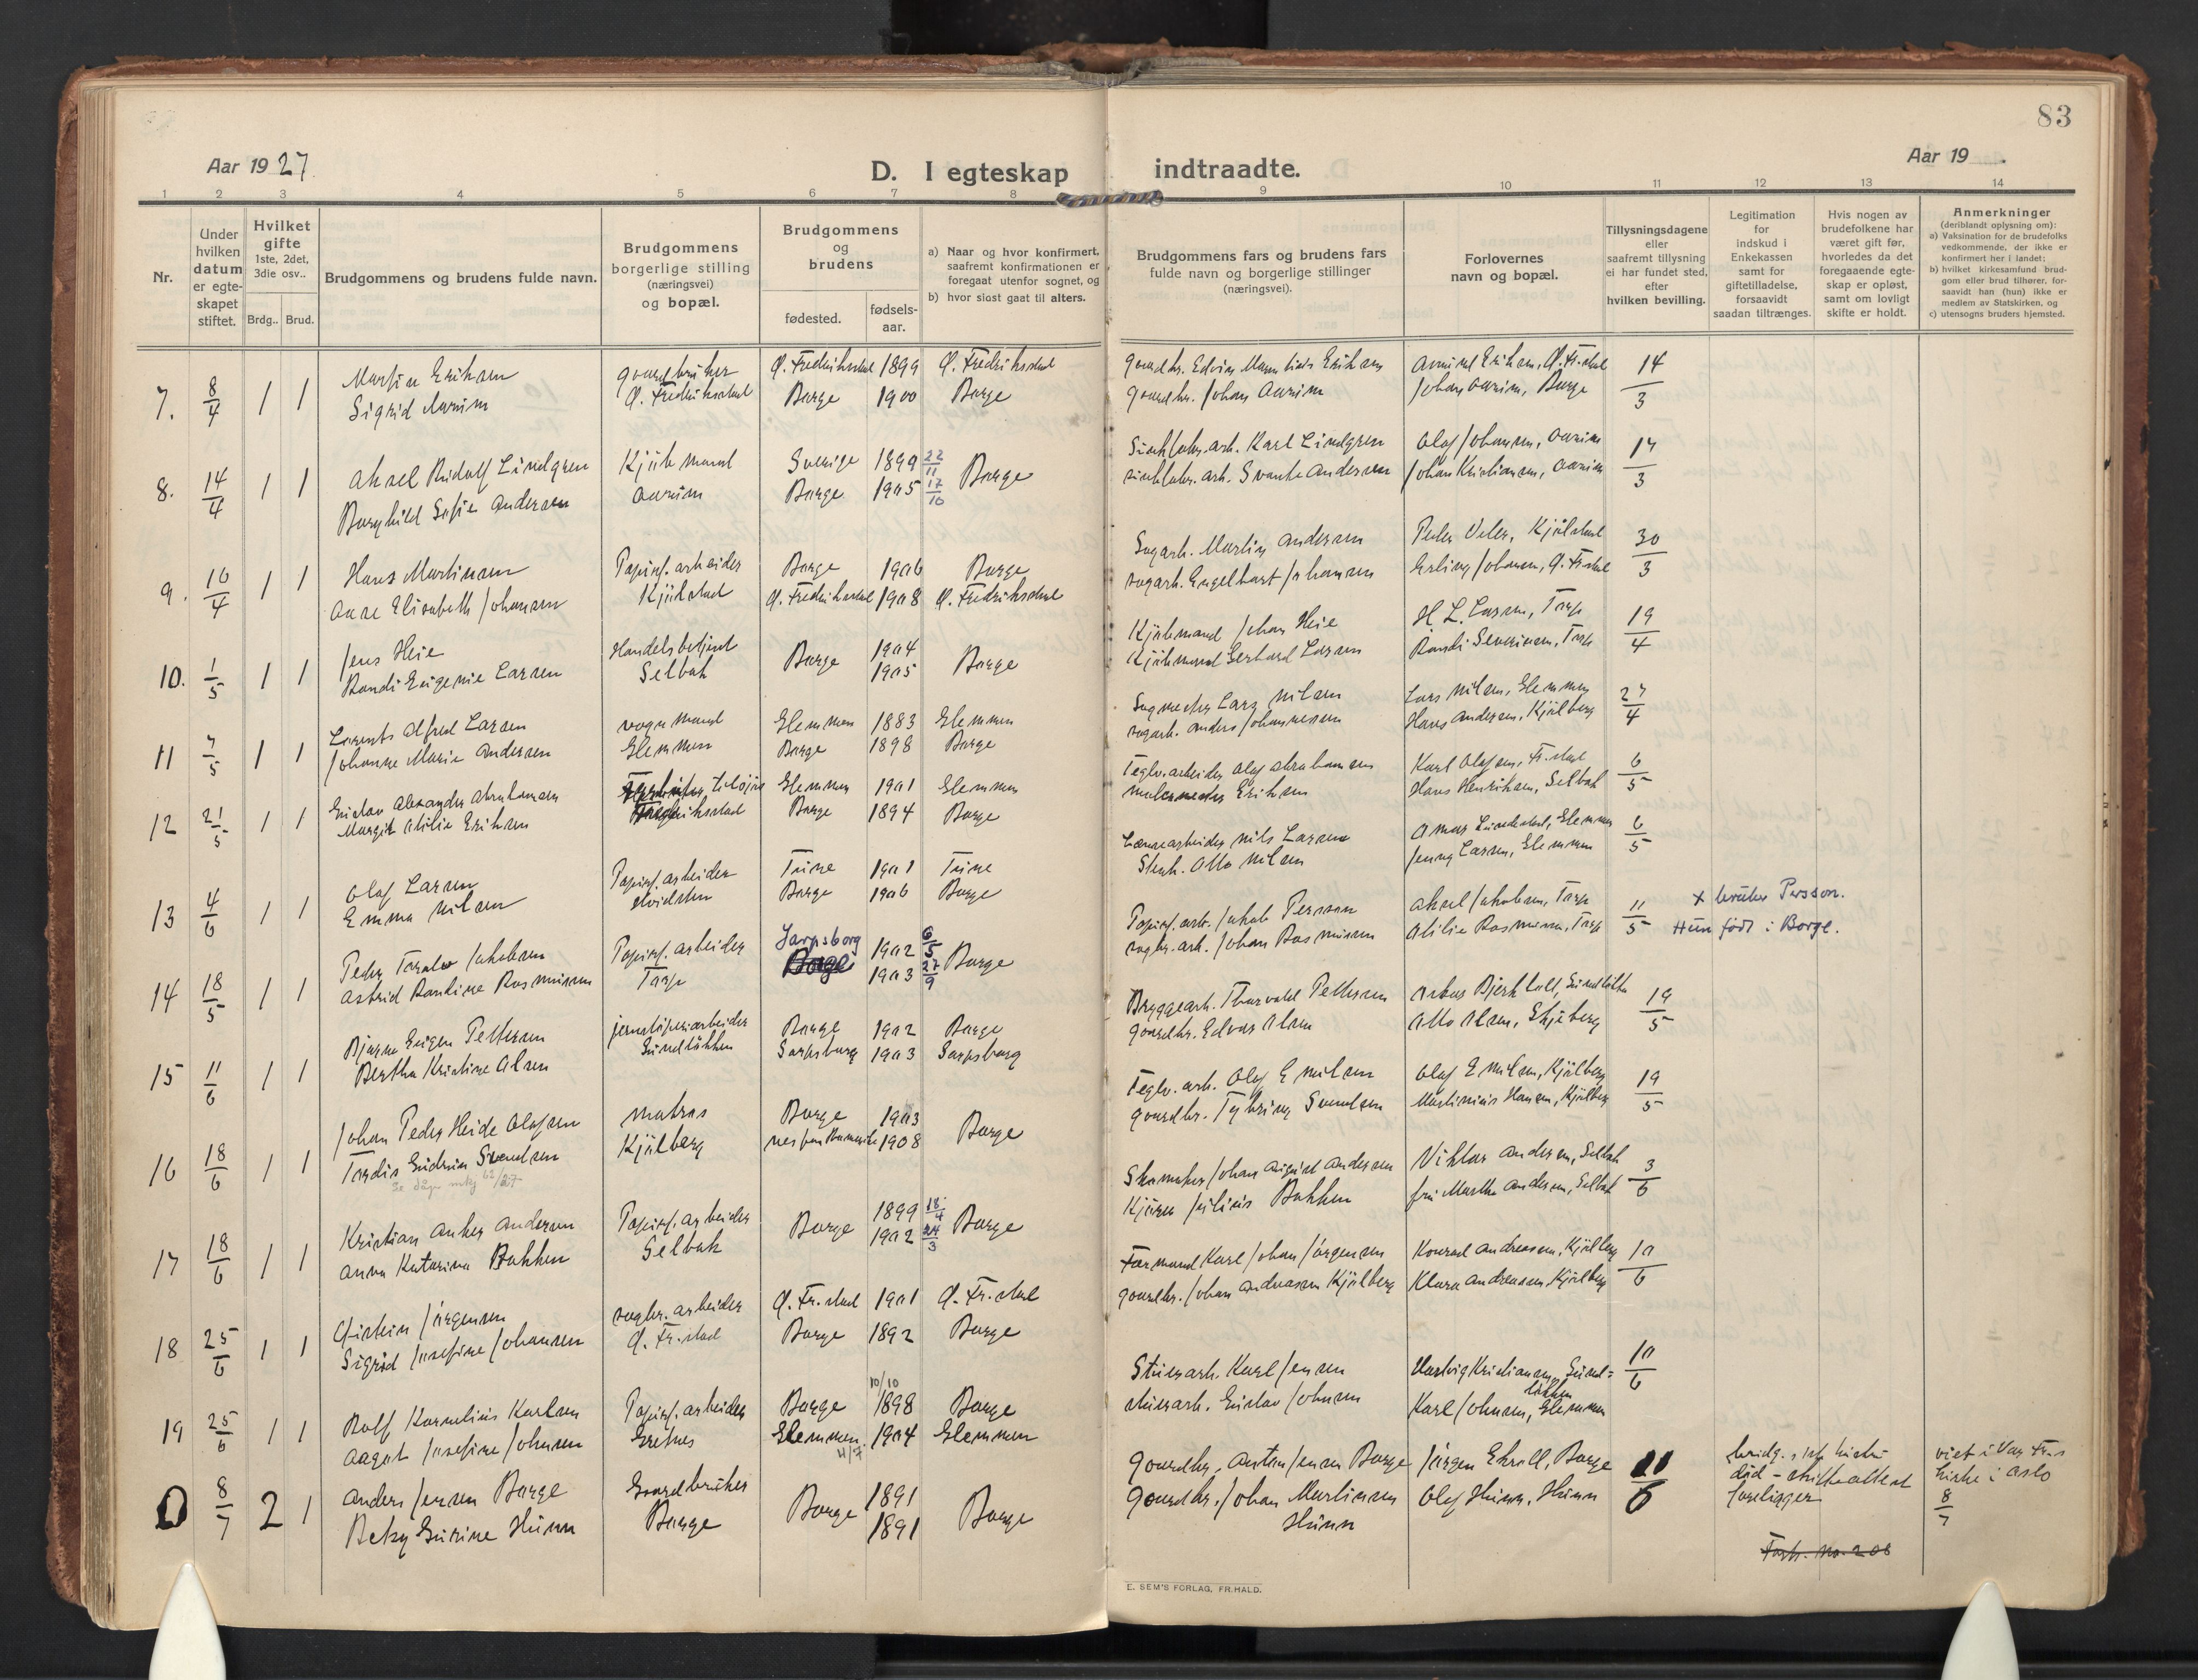 83
Aar 1927.
D. I egteskap indtraadte.
Aar 19 .
1 2 3 4 5 6 7 8 9 10 11 12 13 14
Nr.
Under hvilken datum er egte-skapet stiftet.
Hvilket gifte 1ste, 2det, 3die osv..
Brdg.. Brud.
Brudgommens og brudens fulde navn.
Brudgommens borgerlige stilling (næringsvei) og bopæl.
Brudgommens og brudens
fødested.
fødsels-aar.
a) Naar og hvor konfirmert, saafremt konfirmationen er foregaat utenfor sognet, og
b) hvor sidst gaat til alters.
Brudgommens fars og brudens fars fulde navn og borgerlige stillinger (næringsvei).
Forlovernes navn og bopæl.
Tillysningsdagene eller saafremt tillysning ei har fundet sted, efter hvilken bevilling.
Legitimation for indskud i Enkekassen samt for giftetilladelse, forsaavidt saadan tiltrænges.
Hvis nogen av brudefolkene har været gift før, hvorledes da det foregaaende egte-skap er opløst, samt om lovligt skifte er holdt.
Anmerkninger (deriblandt oplysning om):
a) Vaksination for de brudefolks vedkommende, der ikke er konfirmert her i landet:
b) hvilket kirkesamfund brud-gom eller brud tilhører, for-saavidt han (hun) ikke er medlem av Statskirken, og
c) utensogns bruders hjemsted.
7. 8/4 1 1 Martin Eriksen gaardbruker Ø. Fredrikstad 1899 Ø. Fredrikstad
Sigrid Aarum Ø. Fredrikstad Borge 1900 Borge
gaardbr. Johan Aarum Johan Aarum, Borge 14/3
8. 14/4 1 1 Aksel Rudolf Lindgren Kjøbmand Sverige 1899 22/11 Borge
Borghild Sofie Andersen Aarum Borge 1905 17/10
Karl Lindgren Olaf Johansen, Aarum
Svante Andersen Johan Kristiansen, Aarum
9. 16/4 1 1 Hans Martinsen Papirf. arbeider Borge 1906 Borge
Aase Elisabeth Johansen Kjølstad Ø. Fredrikstad 1908 Ø. Fredrikstad
Sagarb. Martin Andersen 30/3
sagarb. Engelhart Johansen Erling Johansen, Ø. Fr.stad
10. 1/5 1 1 Jens Heie Handelsbetjent Borge 1904 Borge
Randi Eugenie Larsen Selbak 1905
Kjøbmand Johan Heie H. L. Larsen, Torp 19/4
Kjøbmand Gerhard Larsen Randi Severinsen, Torp
11 7/5 1 1 Laurits Alfred Larsen vognmand Glemmen 1883 Glemmen
Johanne Marie Andersen Glemmen Borge 1898 Borge
Lars Nilsen Lars Nilsen, Glemmen 27/4
sagarb. Anders Johannesen Hans Andersen, Kjølberg
12 21/5 1 1 Gustav Alexander Abrahamsen Glemmen 1901 Glemmen
Margit Otilie Eriksen Borge 1894 Borge
Teglv. arbeider Olaf Abrahamsen Karl Olafsen, Fr.stad 6/5
malermester Eriksen Hans Henriksen, Selbak
13 4/6 1 1 Olaf Larsen Papirf. arbeider Tune 1901 Tune
Emma Nilsen Borge 1906 Borge
Nils Larsen 6/5
Otto Nilsen Jenny Larsen, Glemmen
14 18/5 1 1 Peder Jakobsen Papirf. arbeider Sarpsborg 1902 6/5 Borge
Astrid Randine Rasmussen Torp 1903 27/9
Papirf. arb. Jakob Persson Aksel Jakobsen, Torp 11/5 x bruker Persson.
sagbr. arb. Johan Rasmussen Otilie Rasmussen, Torp Hun født i Borge.
15 11/6 1 1 Bjarne Eugen Pettersen jernstøperiarbeider Borge 1902 Borge
Bertha Kristine Olsen Sundløkken Sarpsborg 1903 Sarpsborg
Bryggearb. Thorvald Pettersen 19/5
gaardbr. Edvar Olsen Otto Olsen, Skjeberg
16 18/6 1 1 Johan Peder Heide Olafsen matros Borge 1903 Borge
Tordis Gudrun Svendsen Kjølberg 1908
Teglv. arb. Olaf Emilsen Olaf Emilsen, Kjølberg 19/5
gaardbr. Tybring Svendsen Martinius Hansen, Kjølberg
17 18/6 1 1 Kristian Anker Andersen Papirf. arbeider Borge 1899 18/4 Borge
Anna Katarina Bakken Selbak 1902 24/3
Skomaker Johan August Andersen Viktor Andersen, Selbak 3/6
Kjører Julius Bakken fru Martha Andersen, Selbak
18 25/6 1 1 Øistein Jørgensen sagbr. arbeider Ø. Fr.stad 1901 Ø. Fr.stad
Sigrid Josefine Johansen Ø. Fr.stad Borge 1892 Borge
Formand Karl Johan Jørgensen Konrad Andreassen, Kjølberg 10/6
gaardbr. Johan Andreassen Kjølberg Klara Andreassen, Kjølberg
10/10
19 25/6 1 1 Rolf Kornelius Karlsen Papirf. arbeider Borge 1898 Borge
Aagot Josefine Johnsen Glemmen 1904 Glemmen
4/7
Stuerarb. Karl Jensen Hartvig Kristiansen, Sund=løkken 10/6
stuerarb. Gustav Johnsen Karl Johnsen, Glemmen
8/7 2 1 Anders Jensen Borge Gaardbruker Borge 1891 Borge
Betzy Gurine Hunn Borge 1891
gaardbr. Anton Jensen Borge Jørgen Ekroll, Borge
gaardbr. Johan Martinsen Hunn Olaf Hunn, Hunn
død - skifteattest foreligger
viet i Vor Fr.s kirke i Oslo 8/7
E. SEM'S FORLAG, FR.HALD.